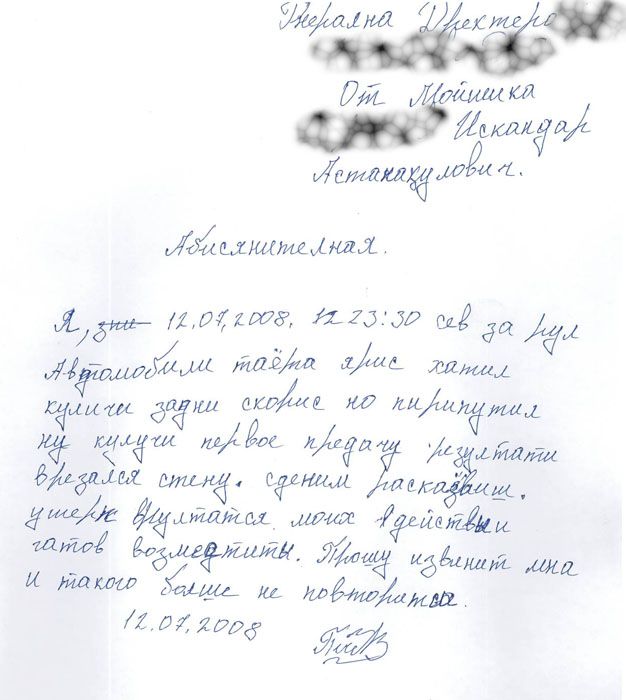 Генерална Директеро
От Мойшика
Искандар
Астанакулович.
Абисянителная.
Я, 12.07.2008. 12 23:30 сев за рул
Автомобили таёта ярис хатил
куличи задни скорис но пирипутил
ну кулучи первое предачу резултати
врезался стену. сденим раскаёваиш.
ушерп врултатся моих действыи
гатов возмедтиты. Прошу извенит мна
и такого болше не повторится.
12.07.2008